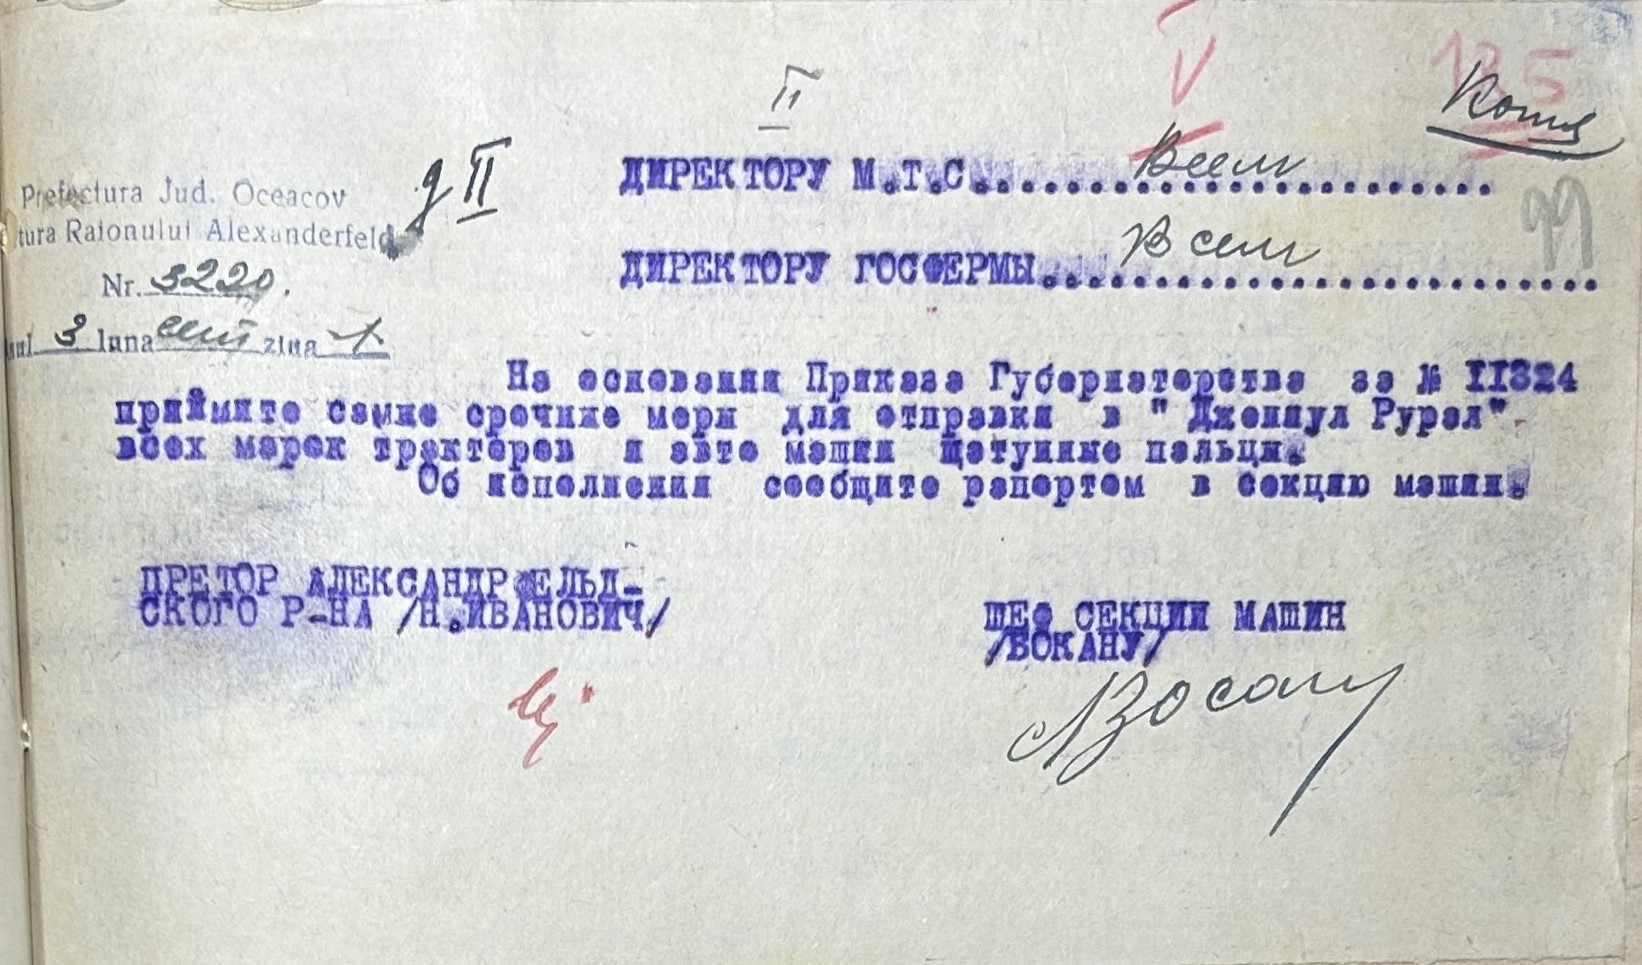 II
V
135
Копия
Prefectura Jud. Oceacov
tura Raionului Alexanderfeld
Nr. 3220.
nul 3 luna сент ziua 1
д II
ДИРЕКТОРУ М.Т.С. Всем
99
ДИРЕКТОРУ ГОСФЕРМЫ Всем
На основании Приказа Губернаторства за № II324
приймите самые срочные меры для отправки в "Джениул Рурал"
всех марек тракторов и авто машин щатунные пальцы.
Об исполнении сообщите рапортом в секцию машин.
ПРЕТОР АЛЕКСАНДРФЕЛЬД-
СКОГО Р-НА /Н.ИВАНОВИЧ/
ШЕФ СЕКЦИИ МАШИН
/БОКАНУ/